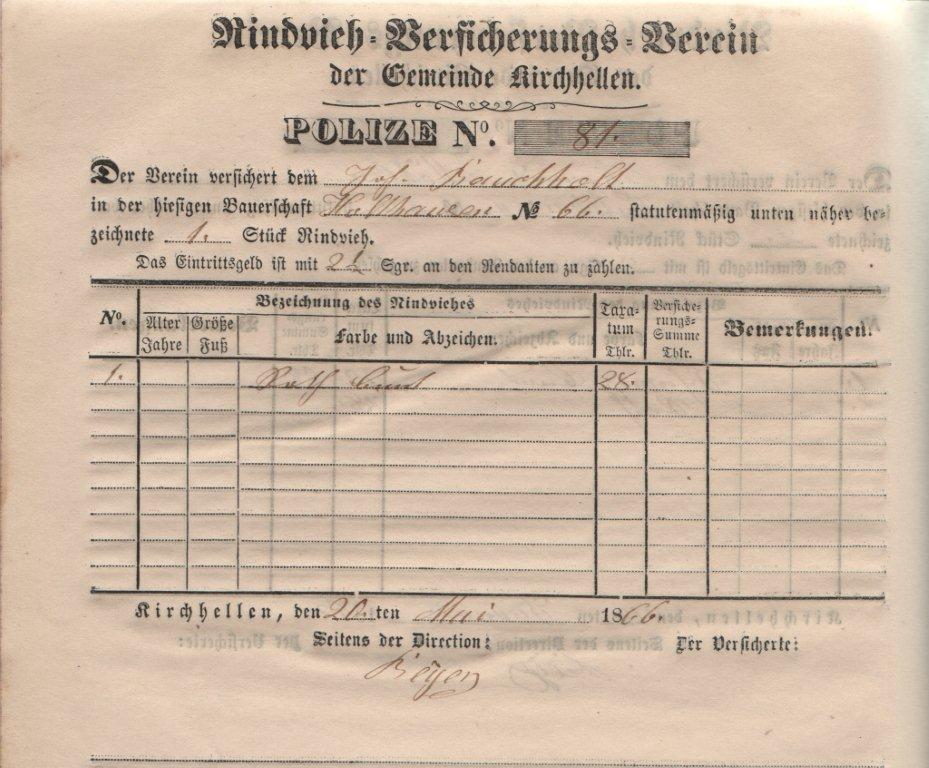 Rindvieh-Versicherungs-Verein
der Gemeinde Kirchhellen.
POLIZE No. 81.
Der Verein versichert dem Joh.
in der hiesigen Bauerschaft Holthausen № 66. statutenmäßig unten näher be-
zeichnete 1. Stück Rindvieh.
Das Eintrittsgeld ist mit 2½ Sgr. an den Rendanten zu zahlen.
No. Bezeichnung des Rindviehes Taxa-tum Thlr. Versiche-rungs-Summe Thlr. Bemerkungen.
Alter Jahre Größe Fuß Farbe und Abzeichen.
1. Roth bunt 28.
Kirchhellen, den 20.ten Mai 1866.
Seitens der Direction: Der Versicherte: